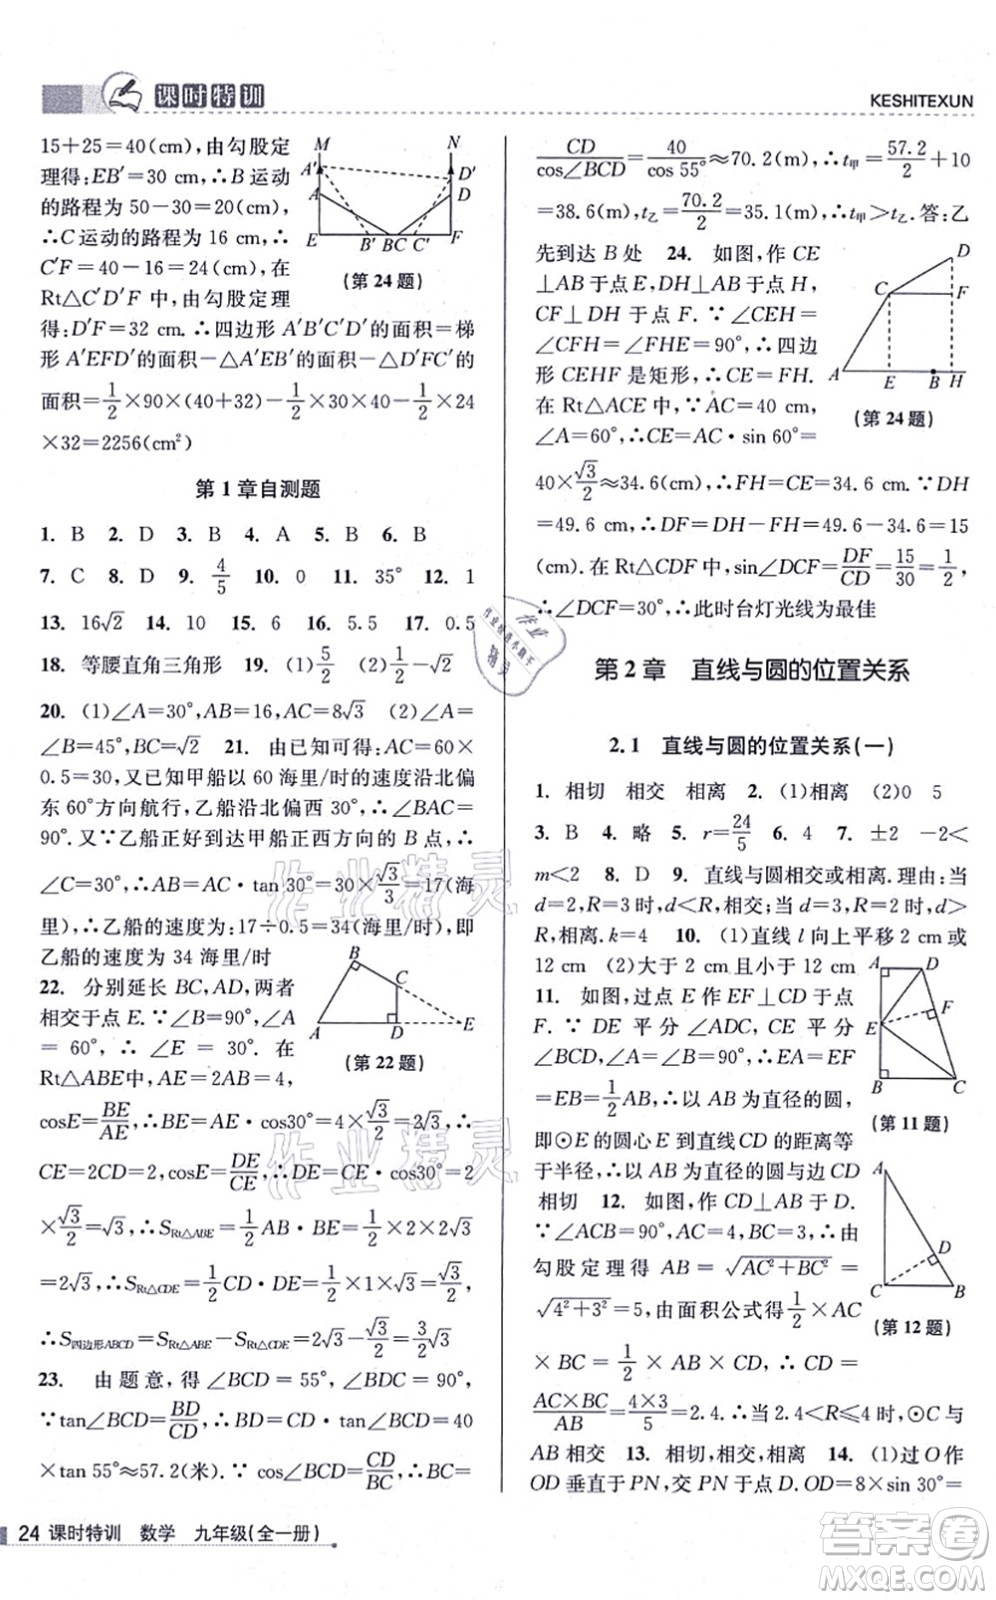 课时特训
KESHITEXUN
15+25=40(cm),由勾股定
理得:EB′=30 cm,∴B 运动
的路程为 50-30=20(cm),
∴C 运动的路程为 16 cm,∴
C′F=40-16=24(cm),在
Rt△C′D′F 中,由勾股定理
得:D′F=32 cm.∴四边形 A′B′C′D′的面积=梯
形 A′EFD′的面积-△A′EB′的面积-△D′FC′的
面积=1/2×90×(40+32)-1/2×30×40-1/2×24
×32=2256(cm²)
M N A′ D′ A D E B′ BC C′ F
(第 24 题)
第 1 章自测题
1. B 2. D 3. B 4. A 5. B 6. B
7. C 8. D 9. 4/5 10. 0 11. 35° 12. 1
13. 16√2 14. 10 15. 6 16. 5.5 17. 0.5
18. 等腰直角三角形 19. (1)5/2 (2)√3/2
20. (1)∠A=30°,AB=16,AC=8√3 (2)∠A=
∠B=45°,BC=√2 21. 由已知可得:AC=60×
0.5=30,又∵甲船以 60 海里/时的速度沿北偏
东 60°方向航行,乙船沿北偏西 30°,∴∠BAC=
90°.又∵乙船正好到达甲船正西方向的 B 点,∴
∠C=30°,∴AB=AC·tan 30°=30×√3/3=17(海
里),∴乙船的速度为:17÷0.5=34(海里/时),即
乙船的速度为 34 海里/时
22. 分别延长 BC,AD,两者
相交于点 E.∵∠B=90°,∠A
= 60°,∴∠E = 30°. 在
Rt△ABE中,AE=2AB=4,
B C A D E
(第 22 题)
cosE=BE/AE,∴BE=AE·cos30°=4×√3/2=2√3,∴
CE=2CD=2,cosE=DE/CE,∴DE=CE·cos30°=2
×√3/2=√3,∴S Rt△ABE=1/2AB·BE=1/2×2×2√3
=2√3,∴S Rt△CDE=1/2CD·DE=1/2×1×√3=√3/2,
∴S四边形ABCD=S Rt△ABE-S Rt△CDE=2√3-√3/2=3/2√3
23. 由题意,得∠BCD=55°,∠BDC=90°,
∵tan∠BCD=BD/CD,∴BD=CD·tan∠BCD=40
×tan 55°≈57.2(米).∵ cos∠BCD=CD/BC,∴BC=
CD/cos∠BCD=40/cos 55°≈70.2(m),∴t甲=57.2/2+10
=38.6(m),t乙=70.2/2=35.1(m),∴t甲>t乙.答:乙
先到达 B 处 24. 如图,作 CE
⊥AB 于点E,DH⊥AB 于点H,
CF⊥DH 于点 F.∵∠CEH=
∠CFH=∠FHE=90°,∴四边
形 CEHF 是矩形,∴CE=FH.
在 Rt△ACE 中,∵AC=40 cm,
∠A=60°,∴CE=AC·sin 60°=
D C F A E B H
(第 24 题)
40×√3/2≈34.6(cm),∴FH=CE=34.6 cm.∵DH
=49.6 cm,∴DF=DH-FH=49.6-34.6=15
(cm).在Rt△CDF中,sin∠DCF=DF/CD=15/30=1/2,
∴∠DCF=30°,∴此时台灯光线为最佳
第 2 章 直线与圆的位置关系
2.1 直线与圆的位置关系(一)
1. 相切 相交 相离 2. (1)相离 (2)0 5
3. B 4. 略 5. r=24/5 6. 4 7. ±2 -2<
m<2 8. D 9. 直线与圆相交或相离.理由:当
d=2,R=3时,d<R,相交;当d=3,R=2时,d>
R,相离.k=4 10. (1)直线 l 向上平移 2 cm或
12 cm (2)大于 2 cm且小于 12 cm
11. 如图,过点 E 作 EF⊥CD 于点
F.∵ DE 平分 ∠ADC, CE 平分
∠BCD,∠A=∠B=90°,∴EA=EF
=EB=1/2AB,∴以 AB 为直径的圆,
即⊙E 的圆心 E 到直线 CD 的距离等
于半径,∴以 AB 为直径的圆与边 CD
相切 12. 如图,作 CD⊥AB 于 D.
∵∠ACB=90°,AC=4,BC=3,∴由
勾股定理得 AB=√AC²+BC²=
√4²+3²=5,由面积公式得1/2×AC
A D F E B C
(第 11 题)
A D C B
(第 12 题)
×BC=1/2×AB×CD,∴CD=
AC×BC/AB=4×3/5=2.4.∴当2.4<R≤4时,⊙C 与
AB 相交 13. 相切,相交,相离 14. (1)过 O 作
OD 垂直于 PN,交 PN 于点 D.OD=8×sin 30°=
24 课时特训 数学 九年级(全一册)
作业精灵
作业精灵
MXQE.COM